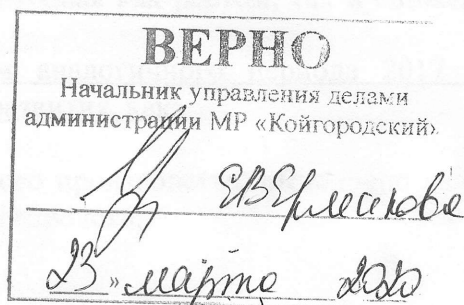 ВЕРНО
Начальник управления делами
администрации МР «Койгородский»
ЕВЕрмакова
23 » марта 2020